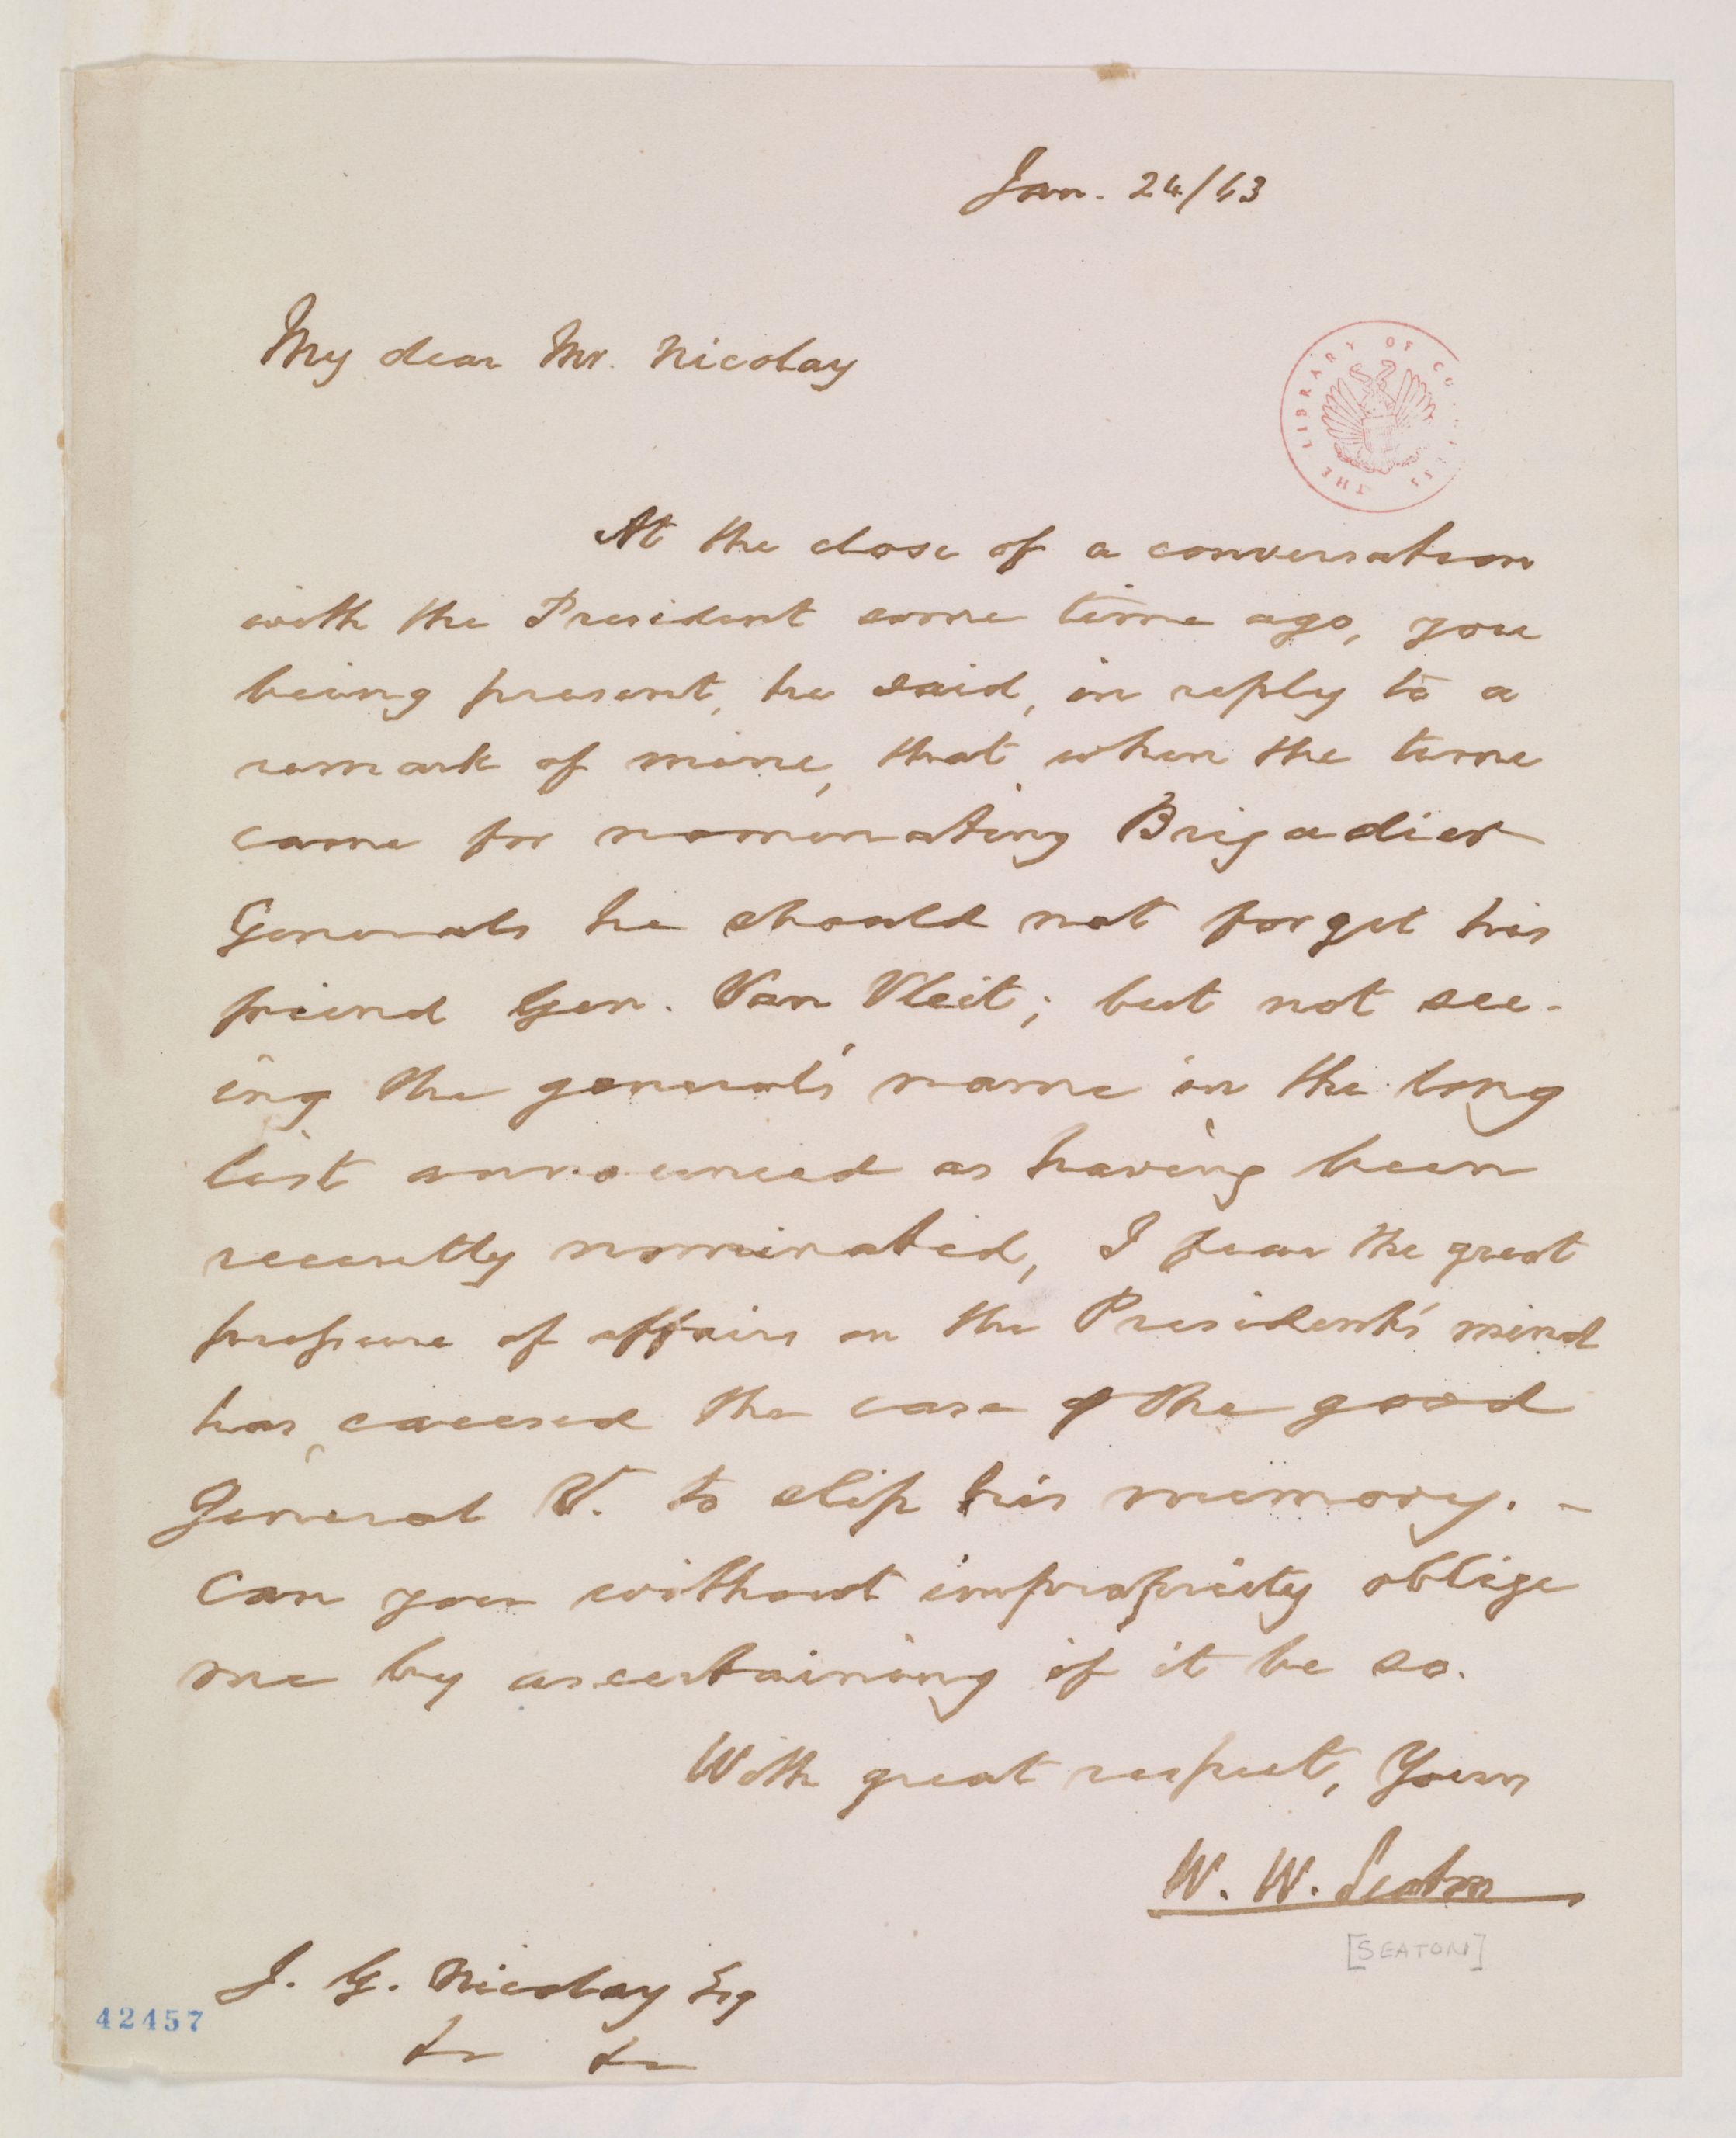 Jan. 24/63
My dear Mr. Nicolay
THE LIBRARY OF CONGRESS
At the close of a conversation
with the President some time ago, you
being present, he said, in reply to a
remark of mine, that, when the time
came for nominating Brigadier
Generals he should not forget his
friend Gen. Van Vleit; but not see-
ing the general's name in the long
list announced as having been
recently nominated, I fear the great
pressure of affairs on the President's mind
has caused the case of the good
General V. to slip his memory. –
Can you without impropriety oblige
me by ascertaining if it be so.
With great respect, Yours
W. W. Seaton
[SEATON]
J. G. Nicolay Esq
42457
&c &c